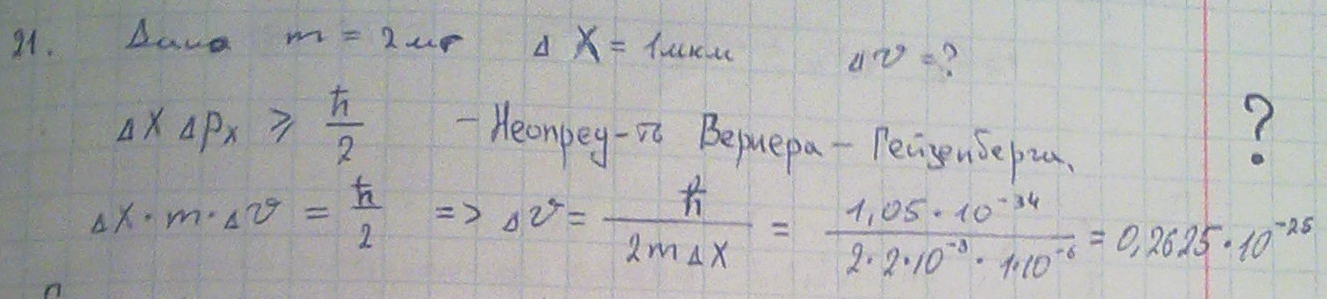 21. Дано m = 2мг Δ X = 1мкм Δ v = ?
ΔX ΔPx ⩾ ħ/2 - Неопред-ть Вернера - Гейзенберга. ?
ΔX · m · Δv = ħ/2 => Δv = ħ/(2mΔX) = (1,05 · 10^-34)/(2 · 2 · 10^-3 · 1 · 10^-6) = 0,2625 · 10^-25